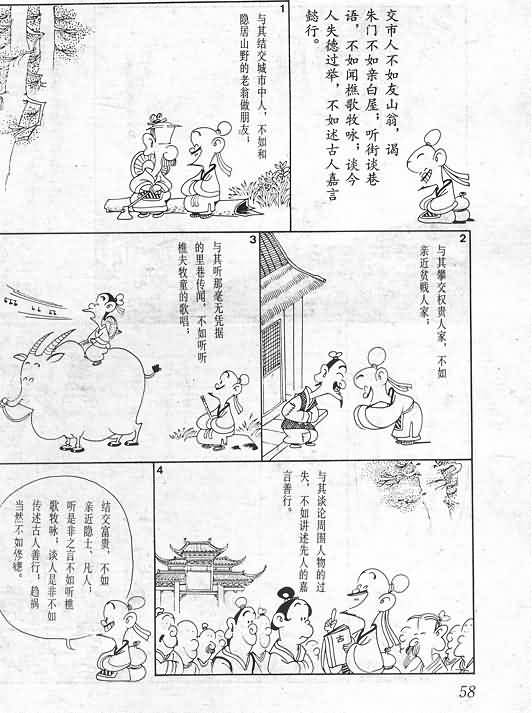 交市人不如友山翁，谒
朱门不如亲白屋；听街谈巷
语，不如闻樵歌牧咏；谈今
人失德过举，不如述古人嘉言
懿行。
1
与其结交城市中人，不如和
隐居山野的老翁做朋友；
2
与其攀交权贵人家，不如
亲近贫贱人家；
3
与其听那毫无凭据
的里巷传闻，不如听听
樵夫牧童的歌唱；
4
与其谈论周围人物的过
失，不如讲述先人的嘉
言善行。
结交富贵，不如
亲近隐士、凡人；
听是非之言不如听樵
歌牧咏；谈人是非不如
传述古人善行；趋祸
当然不如修德。
58